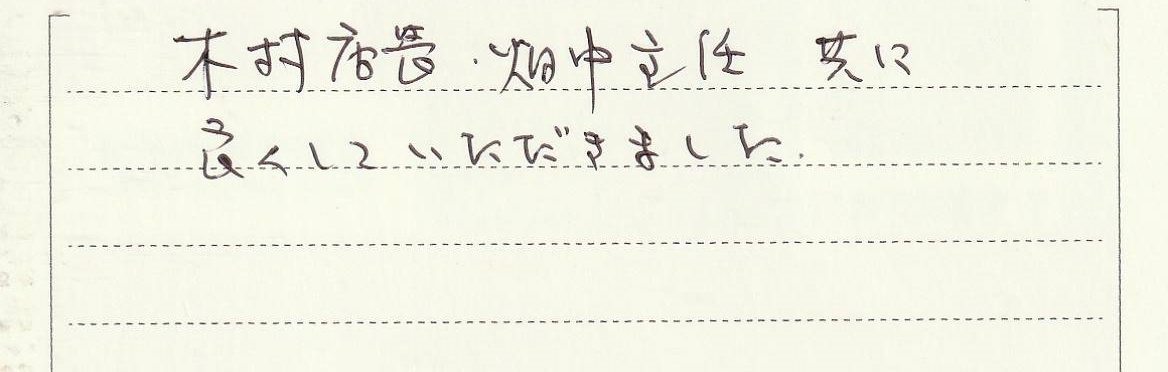 木村店長・畑中主任 共に
良くしていただきました.